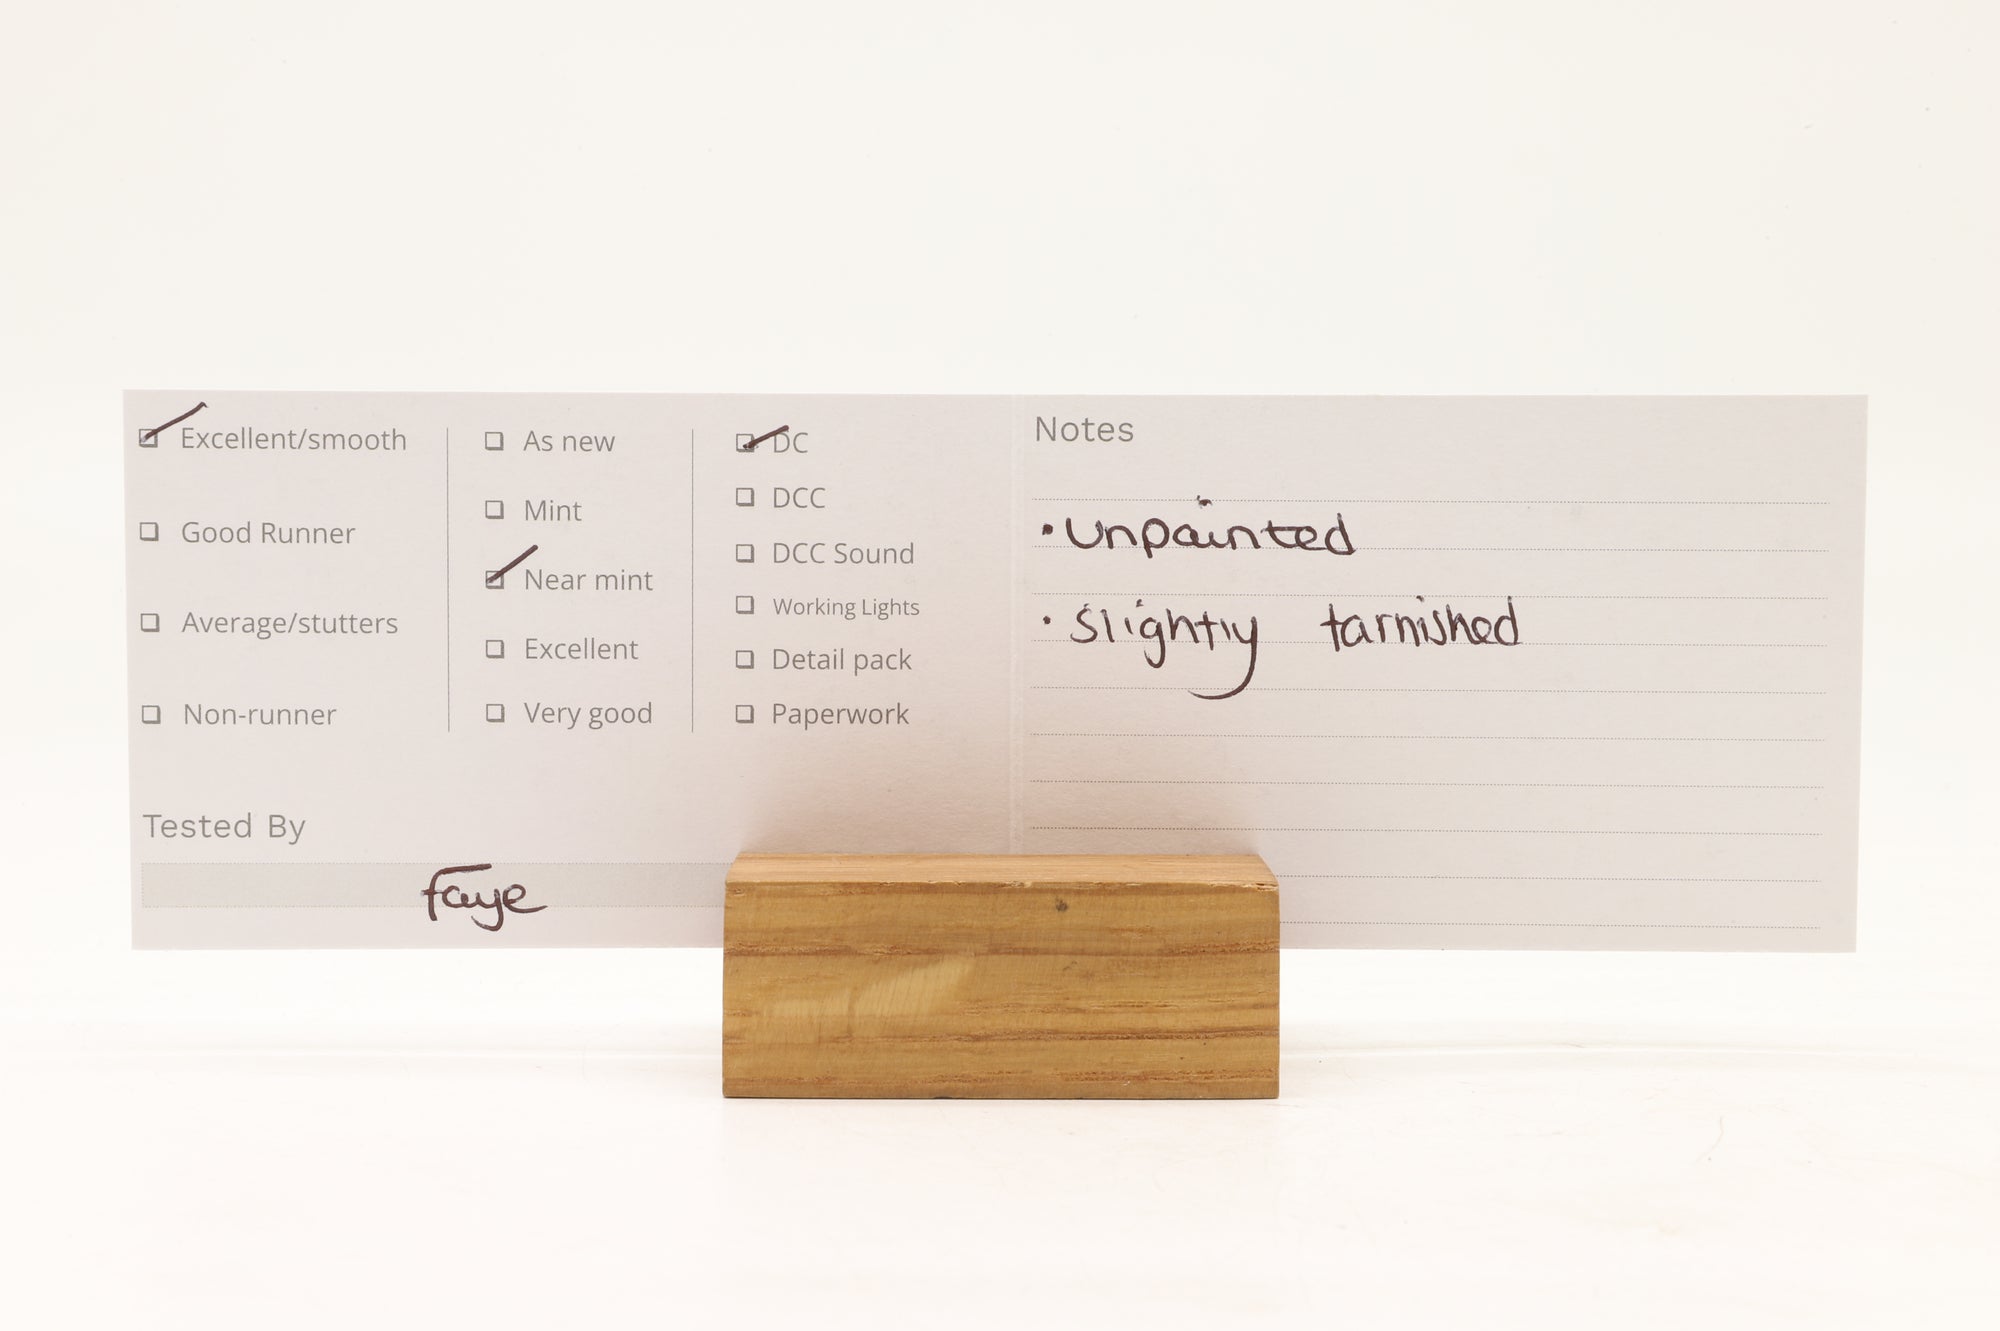 ☑ Excellent/smooth
☐ Good Runner
☐ Average/stutters
☐ Non-runner
☐ As new
☐ Mint
☑ Near mint
☐ Excellent
☐ Very good
☑ DC
☐ DCC
☐ DCC Sound
☐ Working Lights
☐ Detail pack
☐ Paperwork
Tested By
Faye
Notes
• Unpainted
• Slightly tarnished